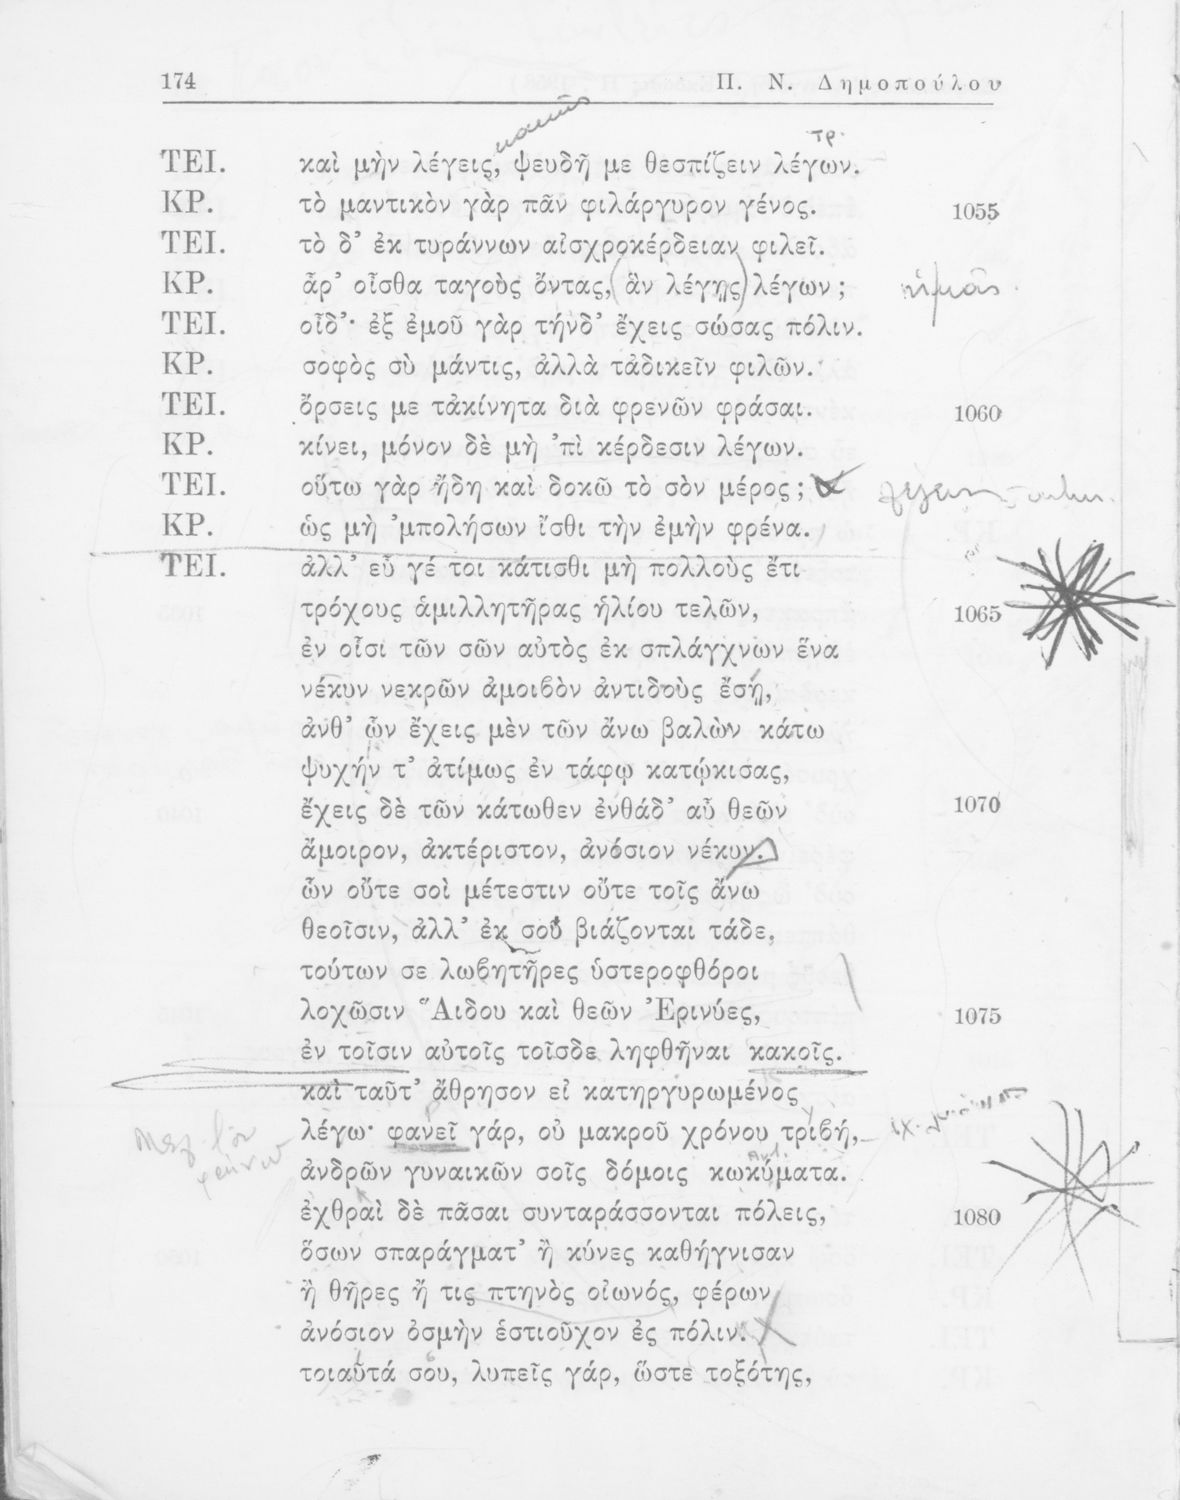 174 Π. Ν. Δημοπούλου
ΤΕΙ. καὶ μὴν λέγεις, ψευδῆ με θεσπίζειν λέγων.
ΚΡ. τὸ μαντικὸν γὰρ πᾶν φιλάργυρον γένος. 1055
ΤΕΙ. τὸ δ’ ἐκ τυράννων αἰσχροκέρδειαν φιλεῖ.
ΚΡ. ἆρ’ οἶσθα ταγοὺς ὄντας, (ἂν λέγῃς) λέγων ; ἡμᾶς
ΤΕΙ. οἶδ’· ἐξ ἐμοῦ γὰρ τήνδ’ ἔχεις σώσας πόλιν.
ΚΡ. σοφὸς σὺ μάντις, ἀλλὰ τἀδικεῖν φιλῶν.
ΤΕΙ. ὄρσεις με τἀκίνητα διὰ φρενῶν φράσαι. 1060
ΚΡ. κίνει, μόνον δὲ μὴ ’πὶ κέρδεσιν λέγων.
ΤΕΙ. οὕτω γὰρ ἤδη καὶ δοκῶ τὸ σὸν μέρος ;
ΚΡ. ὡς μὴ ’μπολήσων ἴσθι τὴν ἐμὴν φρένα.
ΤΕΙ. ἀλλ’ εὖ γέ τοι κάτισθι μὴ πολλοὺς ἔτι
τρόχους ἁμιλλητῆρας ἡλίου τελῶν, 1065
ἐν οἶσι τῶν σῶν αὐτὸς ἐκ σπλάγχνων ἕνα
νέκυν νεκρῶν ἀμοιβὸν ἀντιδοὺς ἔσῃ,
ἀνθ’ ὧν ἔχεις μὲν τῶν ἄνω βαλὼν κάτω
ψυχήν τ’ ἀτίμως ἐν τάφῳ κατῴκισας,
ἔχεις δὲ τῶν κάτωθεν ἐνθάδ’ αὖ θεῶν 1070
ἄμοιρον, ἀκτέριστον, ἀνόσιον νέκυν.
ὧν οὔτε σοὶ μέτεστιν οὔτε τοῖς ἄνω
θεοῖσιν, ἀλλ’ ἐκ σοῦ βιάζονται τάδε,
τούτων σε λωβητῆρες ὑστεροφθόροι
λοχῶσιν Ἅιδου καὶ θεῶν Ἐρινύες, 1075
ἐν τοῖσιν αὐτοῖς τοῖσδε ληφθῆναι κακοῖς.
καὶ ταῦτ’ ἄθρησον εἰ κατηργυρωμένος
λέγω· φανεῖ γάρ, οὐ μακροῦ χρόνου τριβή,
ἀνδρῶν γυναικῶν σοῖς δόμοις κωκύματα.
ἐχθραὶ δὲ πᾶσαι συνταράσσονται πόλεις, 1080
ὅσων σπαράγματ’ ἢ κύνες καθήγνισαν
ἢ θῆρες ἤ τις πτηνὸς οἰωνός, φέρων
ἀνόσιον ὀσμὴν ἑστιοῦχον ἐς πόλιν.
τοιαῦτά σου, λυπεῖς γάρ, ὥστε τοξότης,